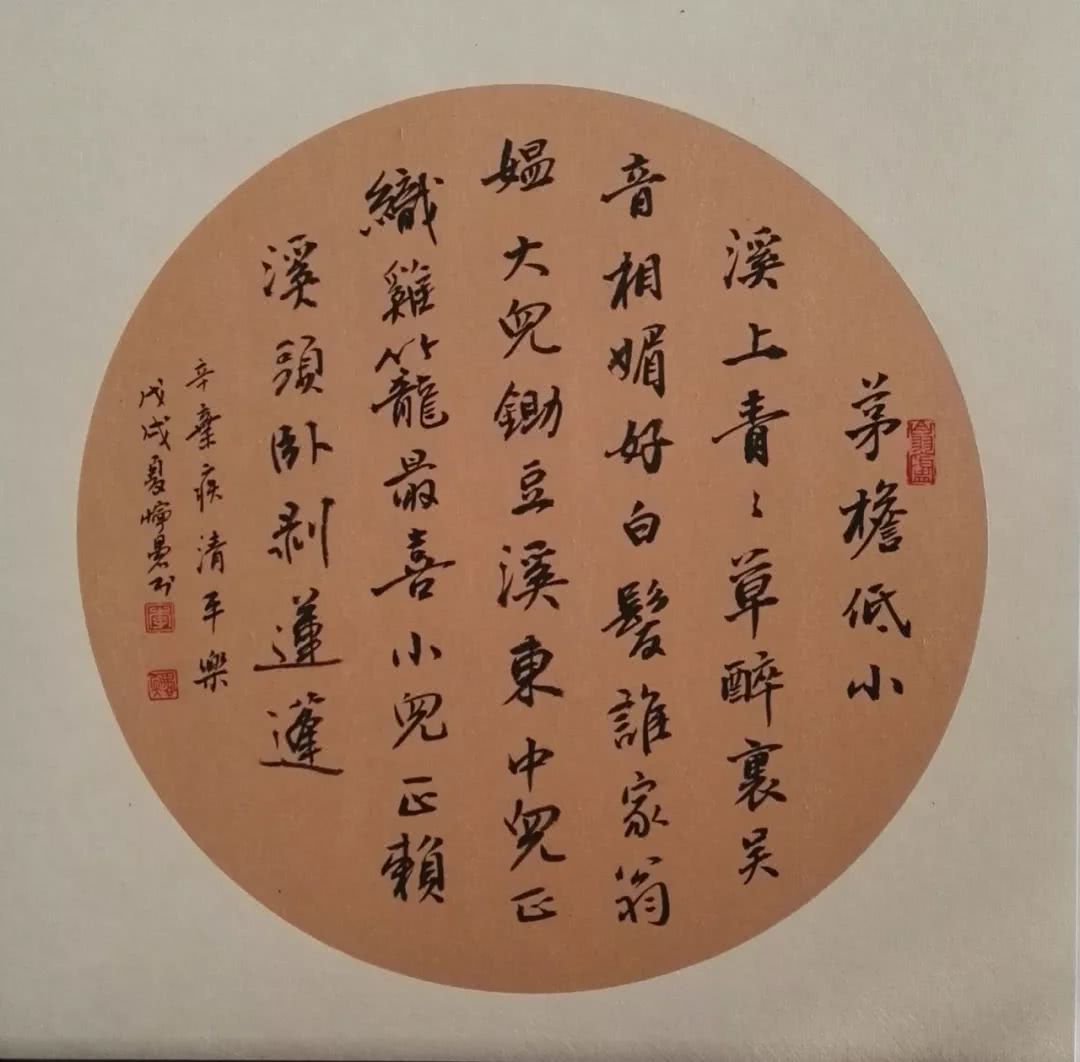 茅檐低小
溪上青〻草醉裏吴
音相媚好白髮誰家翁
媪大兒鋤豆溪東中兒正
織雞籠最喜小兒正賴
溪頭卧剥蓮蓬
辛棄疾清平樂
戊戌夏书